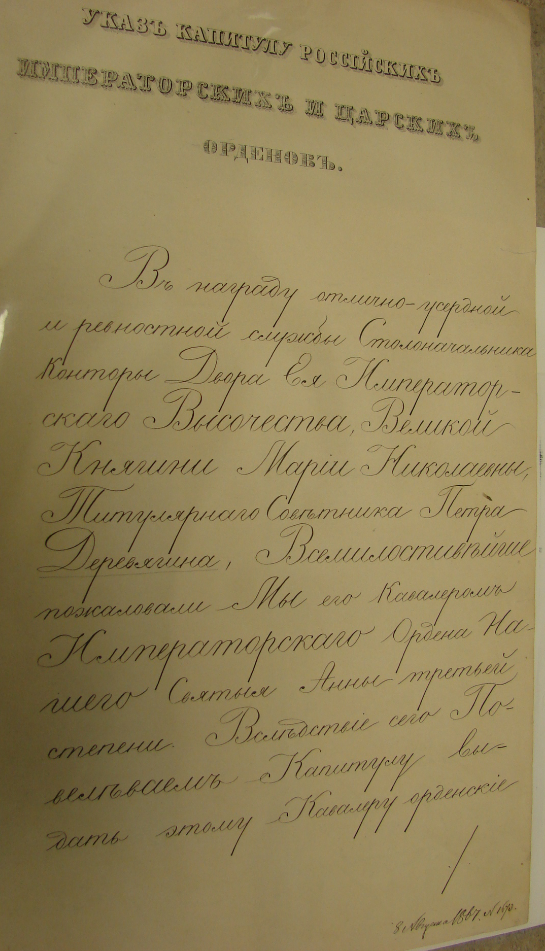 УКАЗЪ КАПИТУЛУ РОССІЙСКИХЪ
ИМПЕРАТОРСКИХЪ И ЦАРСКИХЪ
ОРДЕНОВЪ.
Въ награду отлично-усердной
и ревностной службы Столоначальника
Конторы Двора Ея Император-
скаго Высочества, Великой
Княгини Маріи Николаевны,
Титулярнаго Совѣтника Петра
Деревягина, Всемилостивѣйше
пожаловали Мы его Кавалеромъ
Императорскаго Ордена На-
шего Святыя Анны третьей
степени. Вслѣдствіе сего По-
велѣваемъ Капитулу вы-
дать этому Кавалеру орденскіе